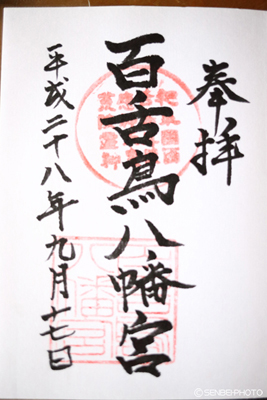 奉拝
百舌鳥八幡宮
平成二十八年九月十七日
© SENBEI-PHOTO